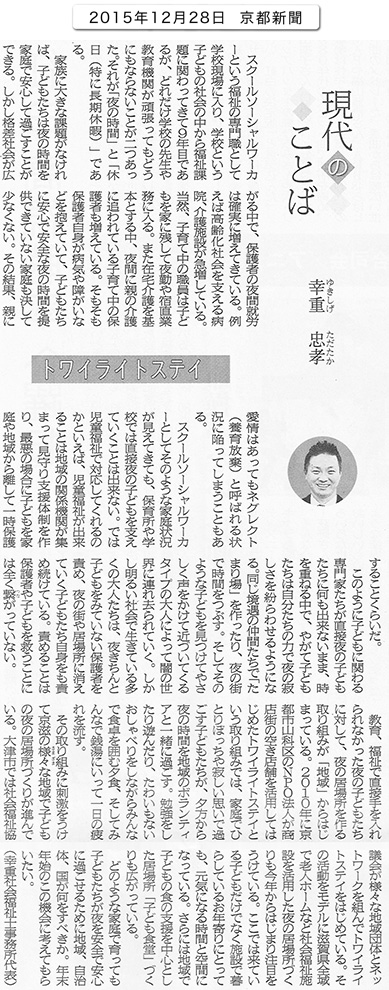 2015年12月28日　京都新聞
現代の
ことば
幸重　忠孝
ゆきしげ　ただたか
トワイライトステイ
スクールソーシャルワーカ
ーという福祉の専門職として
学校現場に入り、学校という
子どもの社会の中から福祉課
題に関わってきて9年目であ
るが、どれだけ学校の先生や
教育機関が頑張ってもどう
にもならないことが二つあっ
た。それが「夜の時間」と「休
日（特に長期休暇）」であ
る。
家族に大きな課題がなけれ
ば、子どもたちは夜の時間を
家庭で安心して過ごすことが
できる。しかし格差社会が広
がる中で、保護者の夜間就労
は確実に増えてきている。例
えば高齢化社会を支える病
院、介護施設が急増している。
当然、子育て中の職員は子ど
もを家に残して夜勤や宿直業
務に入る。また在宅介護を基
本とする中、夜間に親の介護
に追われている子育て中の保
護者も増えている。そもそも
保護者自身が病気や障がいな
どを抱えていて、子どもたち
に安心で安全な夜の時間を提
供できていない家庭も決して
少なくない。その結果、親に
愛情はあってもネグレクト
（養育放棄）と呼ばれる状
況に陥ってしまうこともあ
る。
スクールソーシャルワーカ
ーとしてそのような家庭状況
が見えてきても、保育所や学
校では直接夜の子どもを支え
ていくことは出来ない。では
児童福祉で対応してくれるの
かといえば、児童福祉が出来
ることは地域の関係機関が集
まって見守り支援体制を作
り、最悪の場合に子どもを家
庭や地域から離して一時保護
することくらいだ。
このように子どもに関わる
専門家たちが直接夜の子ども
たちに何も出来ないまま、時
を重ねる中で、やがて子ども
たちは自分たちの力で夜の寂
しさを紛らわせるようにな
る。同じ境遇の仲間たちで「た
まり場」を作ったり、夜の街
で時間をつぶす。そしてその
ような子どもを見つけてやさ
しく声をかけて近づいてくる
タイプの大人によって闇の世
界に連れ去られていく。しか
し明るい社会で生きている多
くの大人たちは、夜きちんと
子どもをみていない保護者を
責め、夜の街や居場所に消え
ていく子どもたち自身をも責
め続けている。責めることは
保護者や子どもを救うことに
は全く繋がっていない。
教育、福祉で直接手を入れ
られなかった夜の子どもたち
に対して、夜の居場所を作る
取り組みが「地域」からはじ
まっている。2010年に京
都市山科区のNPO法人が商
店街の空き店舗を活用しては
じめたトワイライトステイと
いう取り組みでは、家庭でひ
とりぼっちや寂しい思いで過
ごす子どもたちが、夕方から
夜の時間を地域のボランティ
アと一緒に過ごす。勉強をし
たり遊んだり、たわいもない
おしゃべりをしながらみんな
で食卓を囲む夕食、そしてみ
んなで銭湯にいって一日の疲
れを流す。
その取り組みに刺激をうけ
て京滋の様々な地域で子ども
の夜の居場所づくりが進んで
いる。大津市では社会福祉協
議会が様々な地域団体とネッ
トワークを組んでトワイライ
トステイをはじめている。そ
の活動をモデルに滋賀県全域
で老人ホームなど社会福祉施
設を活用した夜の居場所づく
りも今年からはじまり注目を
うけている。ここでは来てい
る子どもだけでなく施設で暮
らしているお年寄りにとって
も、元気になる時間と空間に
なっている。さらには地域で
子どもの食の支援を中心とし
た居場所「子ども食堂」づく
りも広がっている。
どのような家庭で育っても
子どもたちが夜を安全で安心
に過ごせるために地域、自治
体、国が何をすべきか。年末
年始のこの機会に考えてもら
いたい。
（幸重社会福祉士事務所代表）